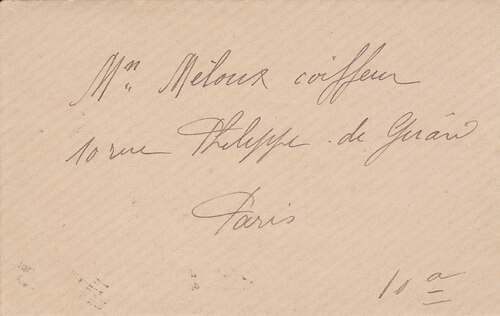 Mn. Méloux coiffeur
10 rue Philippe de Girard
Paris
10 a